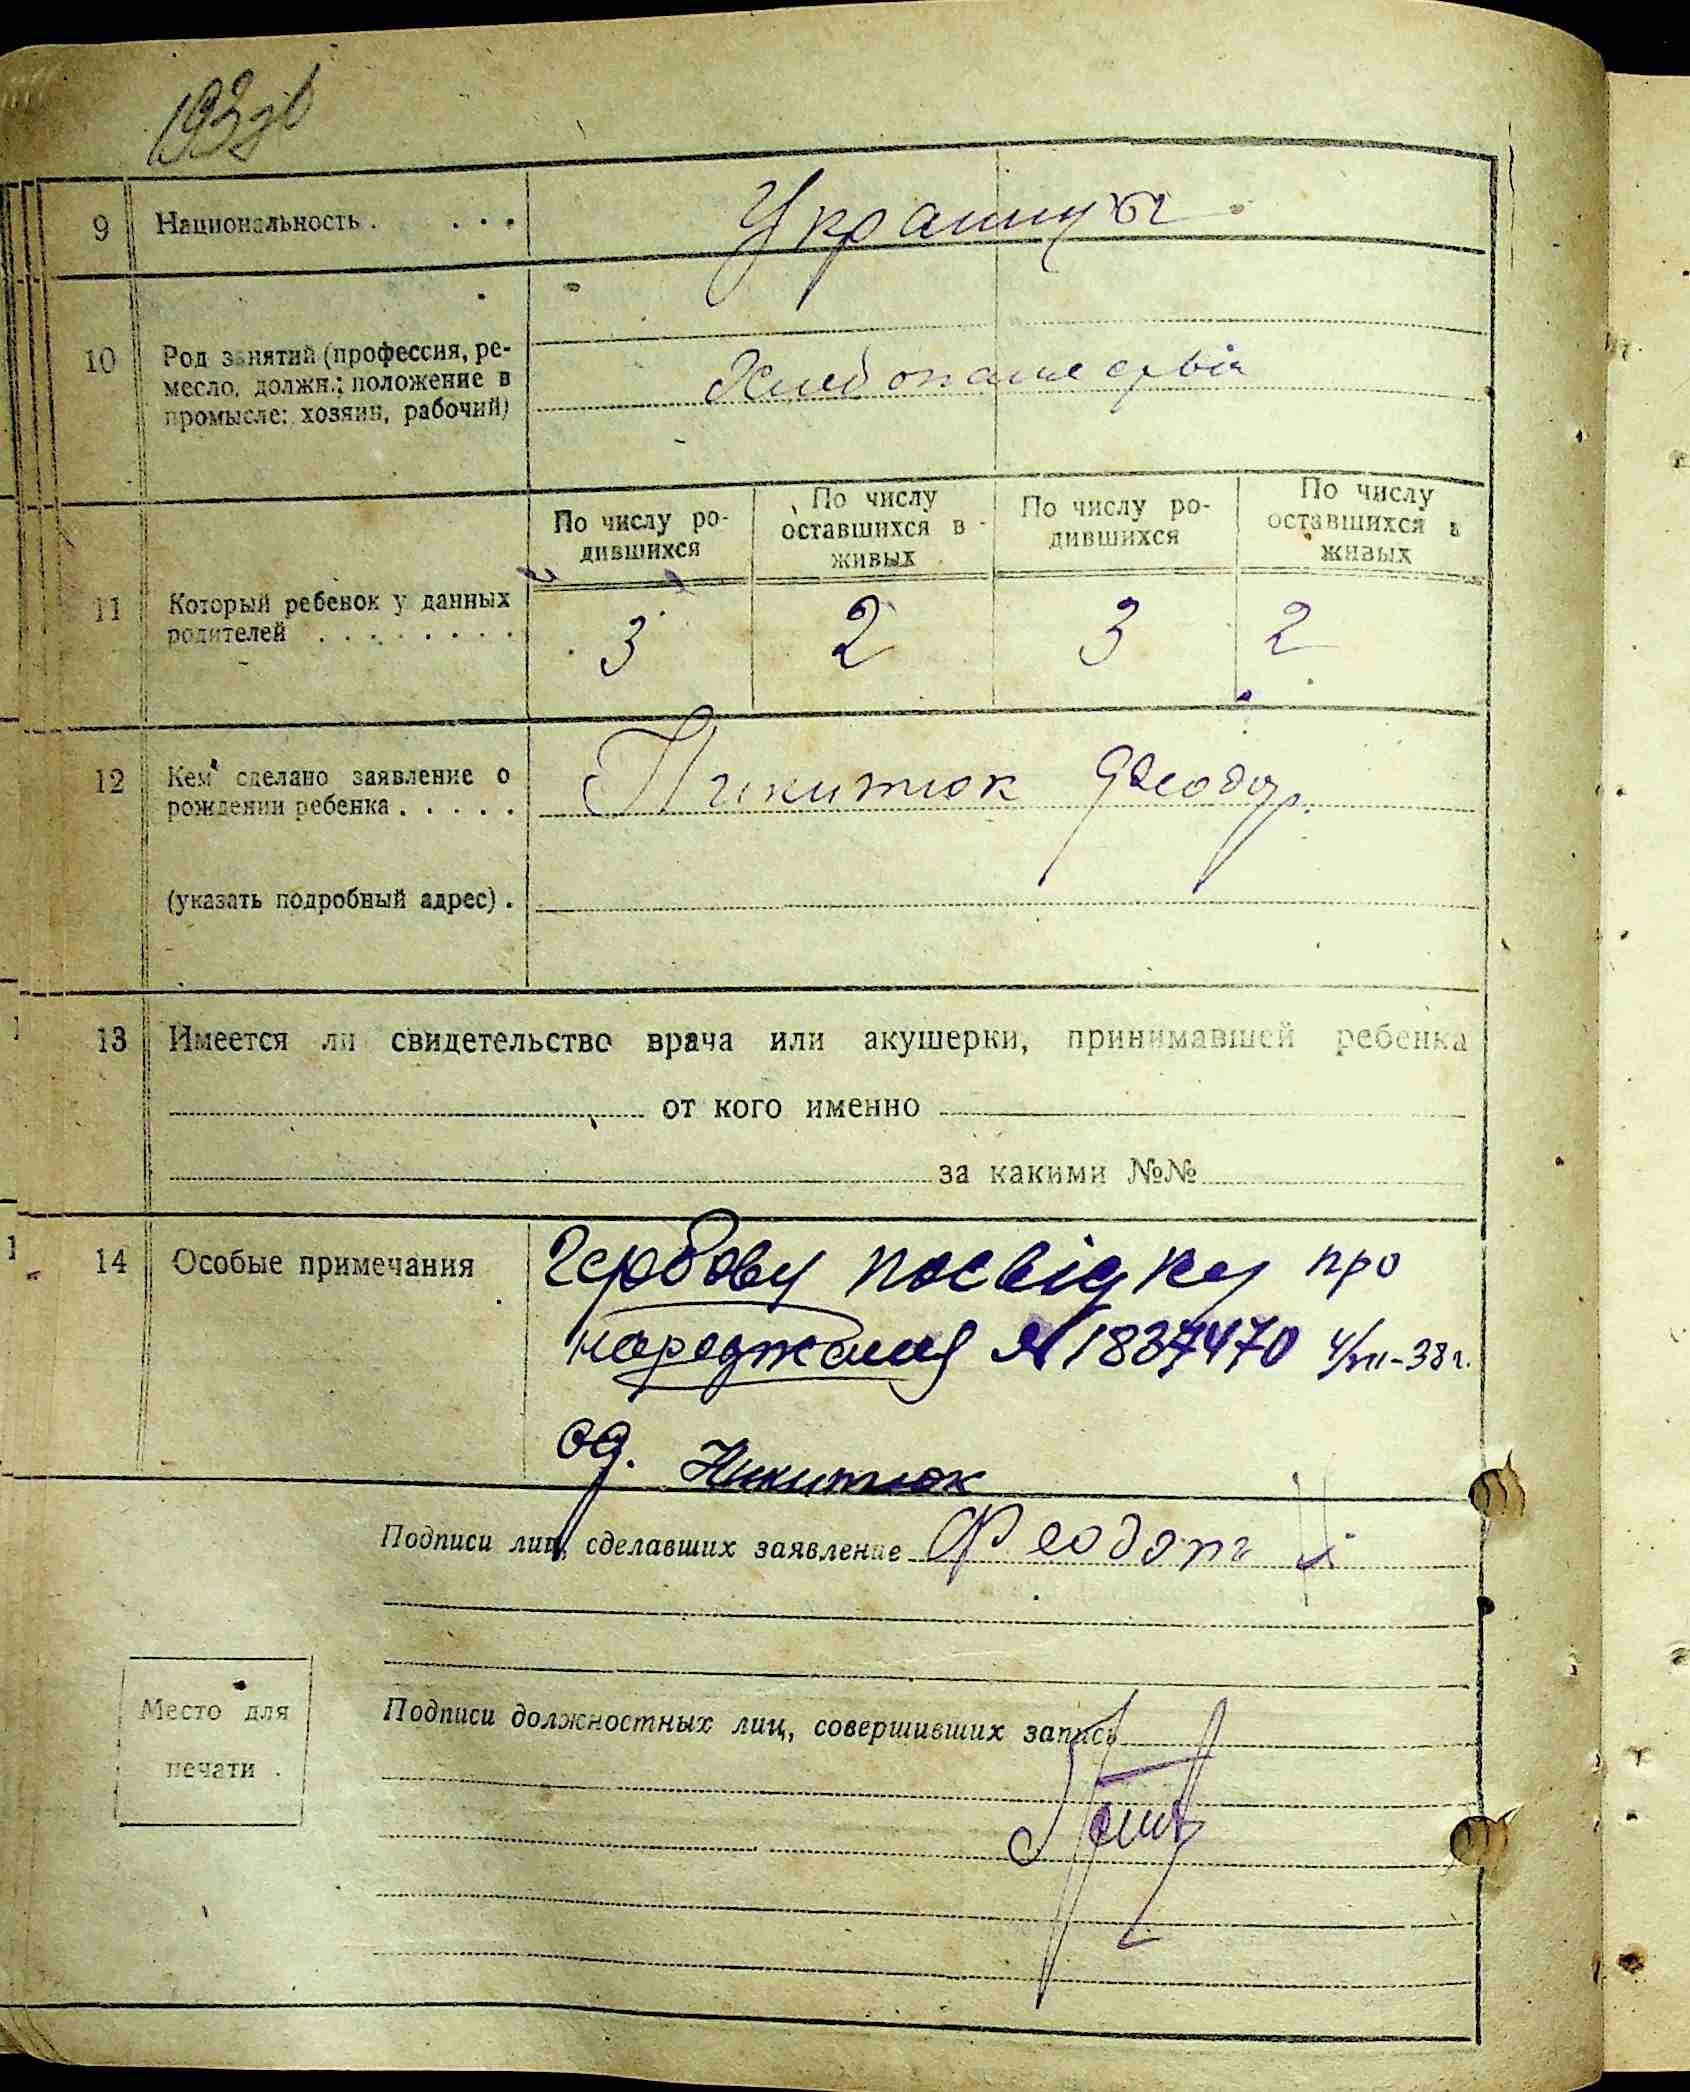 193 зв
9 Национальность . . . . Украинцы
10 Род занятий (профессия, ре-
месло, должн.; положение в
промысле: хозяин, рабочий)
По числу ро-
дившихся
По числу
оставшихся в
живых
По числу ро-
дившихся
По числу
оставшихся в
живых
11 Который ребенок у данных
родителей . . . . . . . .
3 2 3 2
12 Кем сделано заявление о
рождении ребенка . . . . .
Никитюк Феодор
(указать подробный адрес) .
13 Имеется ли свидетельство врача или акушерки, принимавшей ребенка
от кого именно
за какими №№
14 Особые примечания
Гербову посвідку про
народження № 1837470 4/VII-38 г.
од. Никитюк
Подписи лиц, сделавших заявление Феодот
Место для
печати
Подписи должностных лиц, совершивших запись